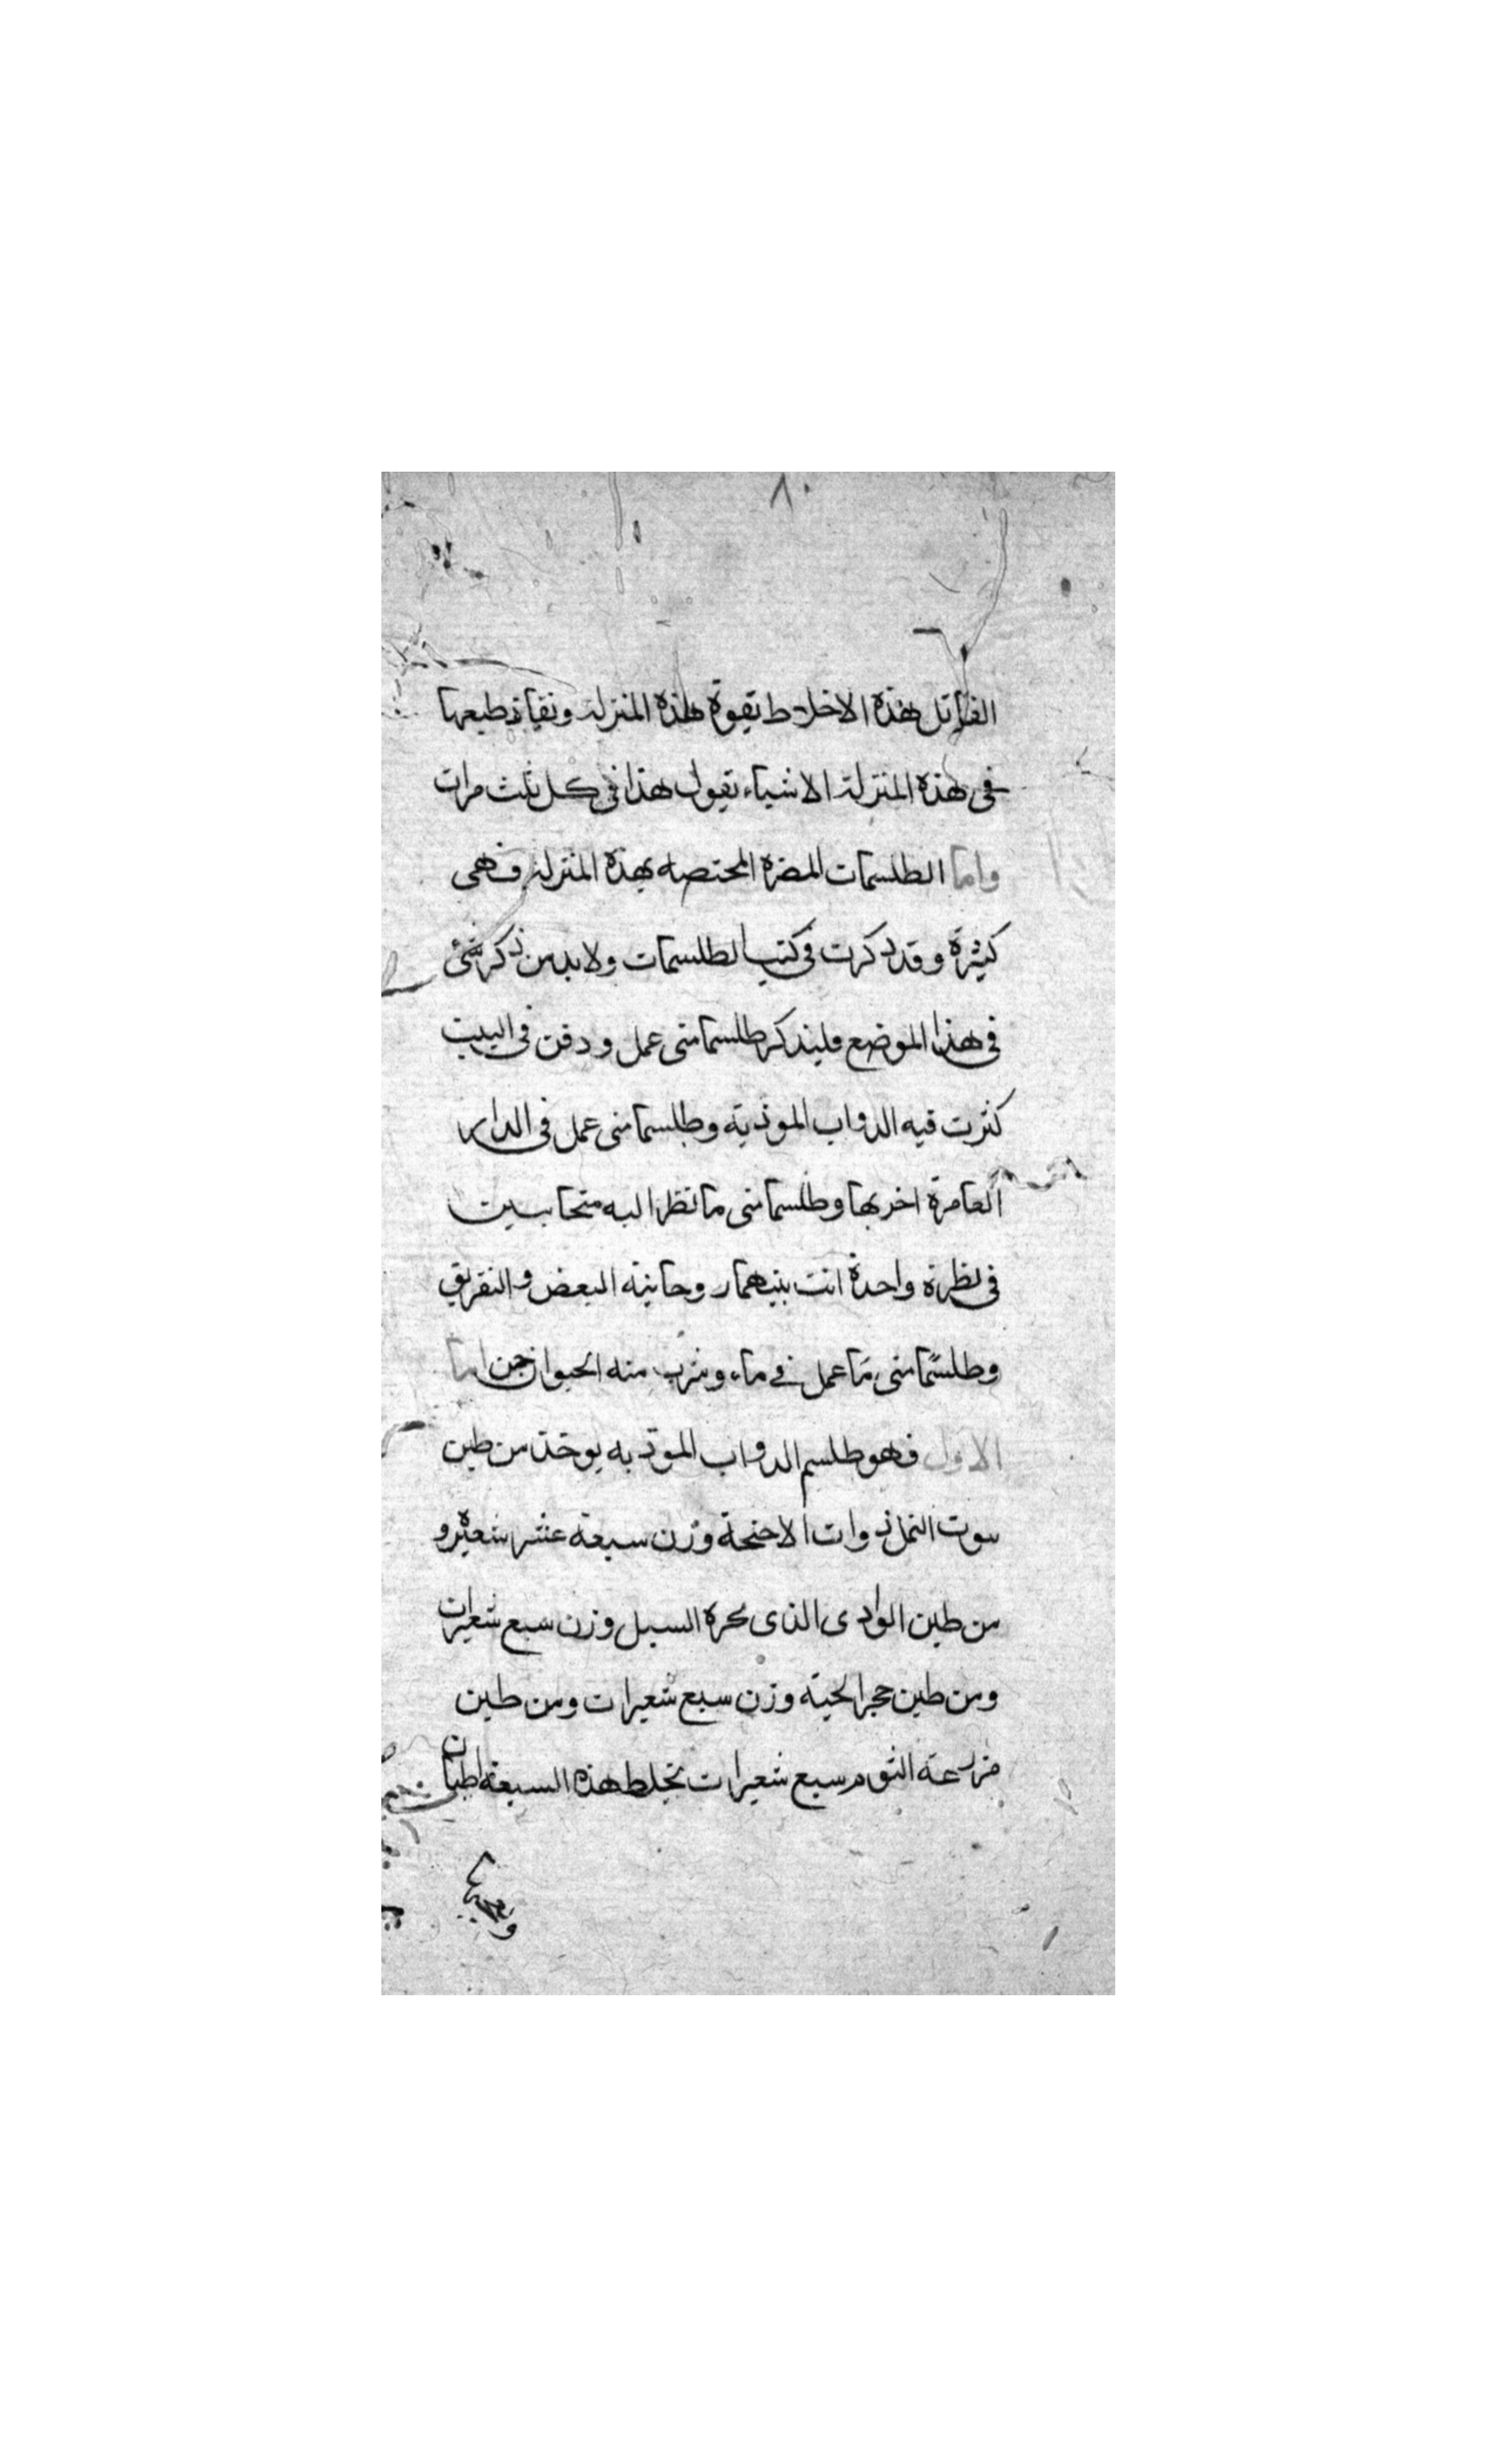 ٨٠
القاتل هذه الاخلاط بقوة هذه المنزلة ونفاذ طبعها
فى هذه المنزلة الاشياء تقول هذا فى كل ثلث مرات
واما الطلسمات المضرة المختصه بهذه المنزلة فهى
كثيرة وقد ذكرت فى كتب الطلسمات ولابد من ذكر شئ
فى هذا الموضع فليذكر طلسما متى عمل ودفن فى البيت
كثرت فيه الدواب الموذية وطلسما متى عمل فى الدار
العامرة اخربها وطلسما متى ما نظر اليه متحابين
فى نظرة واحدة انت بينهما روحانية البغض والتفريق
وطلسما متى ما عمل فى ماء وشرب منه الحيوان جن اما
الاول فهو طلسم الدواب الموذيه يوخذ من طين
بيوت النمل ذوات الاجنحة وزن سبعة عشر شعيرة و
من طين الوادى الذى يجره السيل وزن سبع شعيرات
ومن طين حجر الحية وزن سبع شعيرات ومن طين
مزرعة الثوم سبع شعيرات تخلط هذه السبعة اطيان